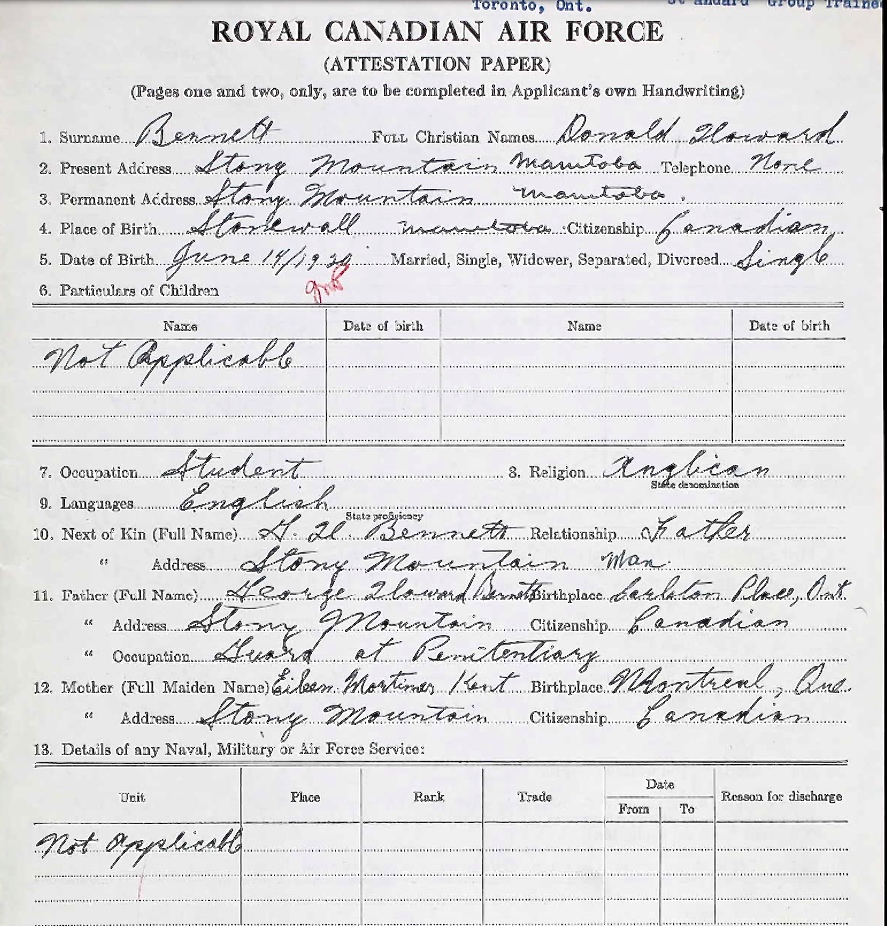 Toronto, Ont. Standard Group Trainee
ROYAL CANADIAN AIR FORCE
(ATTESTATION PAPER)
(Pages one and two, only, are to be completed in Applicant's own Handwriting)
1. Surname Bennett FULL Christian Names Donald Howard
2. Present Address Stony Mountain Manitoba Telephone None
3. Permanent Address Stony Mountain Manitoba.
4. Place of Birth Stonewall Manitoba Citizenship Canadian
5. Date of Birth June 14/19 Married, Single, Widower, Separated, Divorced Single
6. Particulars of Children
Name Date of birth Name Date of birth
Not Applicable
7. Occupation Student 8. Religion Anglican
State denomination
9. Languages English
State proficiency
10. Next of Kin (Full Name) G. H. Bennett Relationship Father
" Address Stony Mountain Man
11. Father (Full Name) George Howard Bennett Birthplace Carleton Place, Ont.
" Address Stony Mountain Citizenship Canadian
" Occupation Guard at Penitentiary
12. Mother (Full Maiden Name) Eileen Mortimer Kent Birthplace Montreal, Que.
" Address Stony Mountain Citizenship Canadian
13. Details of any Naval, Military or Air Force Service:
Unit Place Rank Trade Date Reason for discharge
From To
Not Applicable